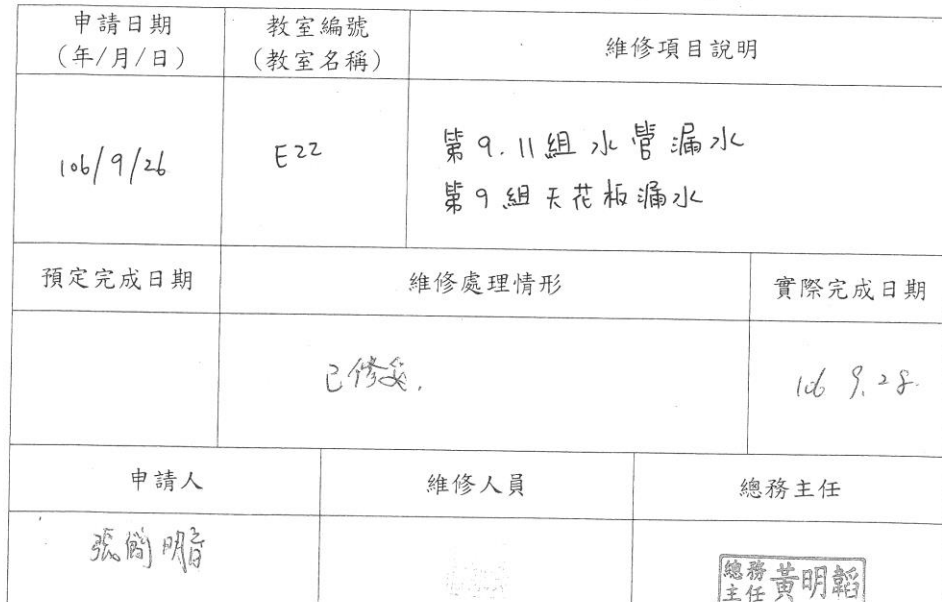 申請日期
(年/月/日)
教室編號
(教室名稱)
維修項目說明
106/9/26
E22
第9.11組水管漏水
第9組天花板漏水
預定完成日期
維修處理情形
實際完成日期
已修妥.
106 9.28.
申請人
維修人員
總務主任
張簡明音
總務
主任 黃明韜